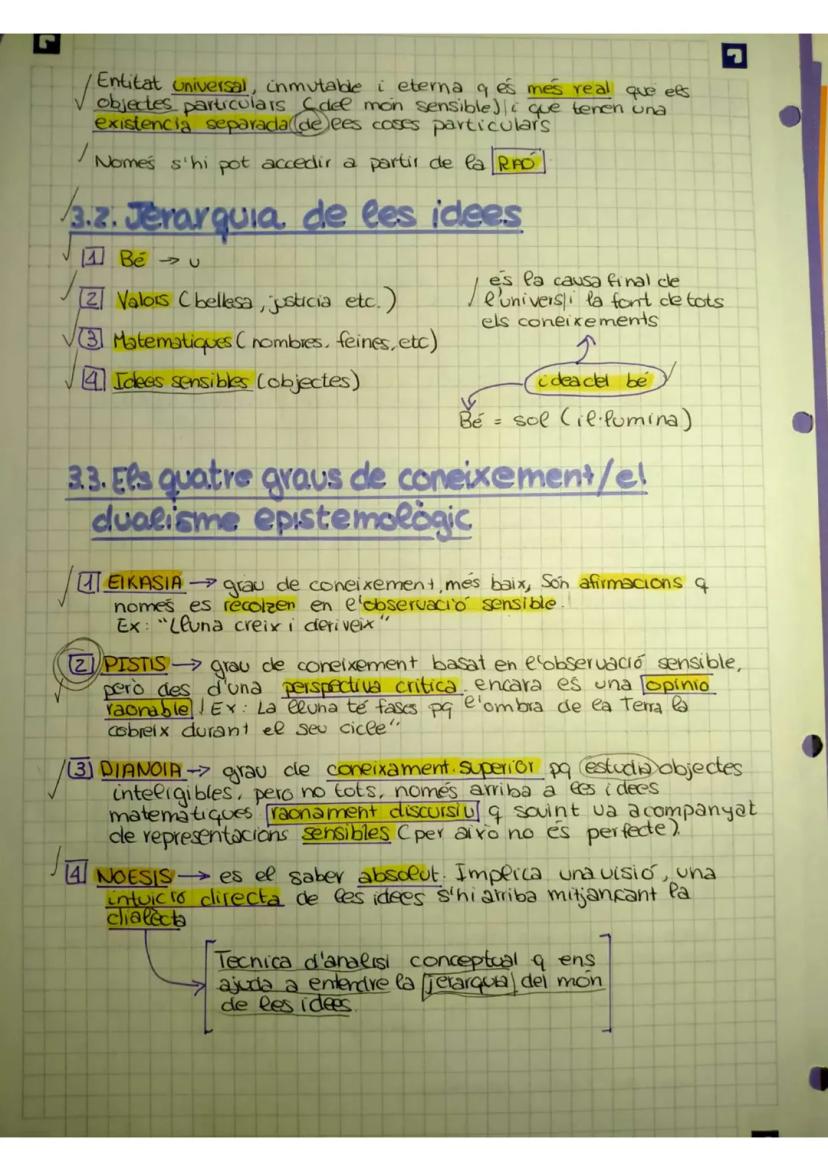 Entitat universal, inmutable i eterna q és més real que els
objectes particulars (del mon sensible) i que tenen una
existencia separada de les coses particulars
Nomes s'hi pot accedir a partir de la RAÓ
3.2. Jerarquia de les idees
1 Bé → u
2 Valors (bellesa, justicia etc.)
3 Matematiques (nombres, feines, etc)
4 Idees sensibles (objectes)
és la causa final de
l'univers i la font de tots
els coneixements
idea del bé
Bé = sol (il·lumina)
3.3. Els quatre graus de coneixement/el
dualisme epistemològic
1 EIKASIA → grau de coneixement més baix, Són afirmacions q
nomes es recolzen en l'observació sensible.
Ex: "Lluna creix i deriveix"
2 PISTIS → grau de coneixement basat en l'observació sensible,
però des d'una perspectiva crítica. encara es una opinio
raonable Ex: La lluna té fases pq l'ombra de la Terra la
cobreix durant el seu cicle"
3 DIANOIA → grau de coneixament superior pq estudia objectes
inteligibles, pero no tots, només arriba a les idees
matematiques raonament discursiu q sovint va acompanyat
de representacions sensibles (per això no és perfecte)
4 NOESIS → es el saber absolut. Implica una visió, una
intuicio directa de les idees s'hi arriba mitjançant la
dialècta
Tecnica d'analisi conceptual q ens
ajuda a entendre la jerarquia del món
de les idees